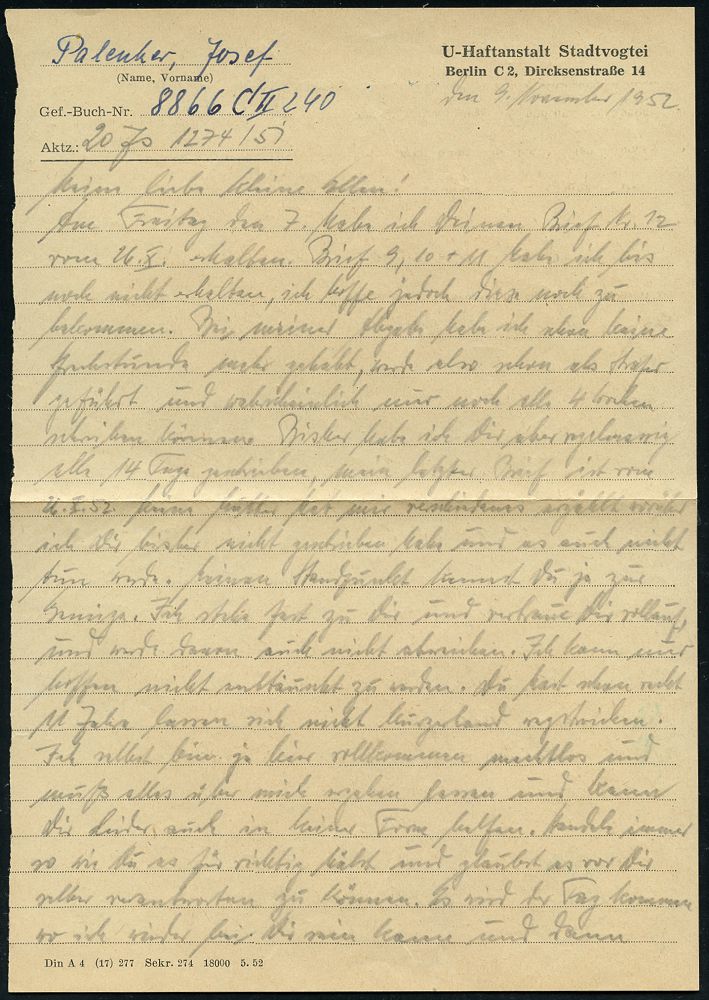 Palenker, Josef
(Name, Vorname)
U-Haftanstalt Stadtvogtei
Berlin C 2, Dircksenstraße 14
den 9. November 1952.
Gef.-Buch-Nr. 8866 C II 240
Aktz.: 20 Js 1274/51
Meine liebe kleine Ellen!
Am Freitag den 7. habe ich Deinen Brief Nr. 12
vom 26.X. erhalten. Brief 9, 10 + 11 habe ich bis
noch nicht erhalten, ich hoffe jedoch diese noch zu
bekommen. meiner habe ich schon keine
Sprechstunde mehr gehabt, werde also schon als
geführt und wahrscheinlich nur noch alle 4 Wochen
schreiben können. Bisher habe ich Dir aber regelmässig
alle 14 Tage geschrieben, mein letzter Brief ist vom
26.X.52. Meine Mutter hat mir verschiedenes erzählt worüber
ich Dir bisher nicht geschrieben habe und es auch nicht
tun werde. Meinen Standpunkt kennst Du ja zur
Genüge. Ich stehe fest zu Dir und vertraue Dir vollauf,
und werde davon auch nicht abweichen. Ich kann nur
hoffen nicht enttäuscht zu werden. Du hast schon recht
11 Jahre lassen sich nicht kurzerhand wegstreichen.
Ich selbst bin ja hier vollkommen machtlos und
muß alles über mich ergehen lassen und kann
Dir leider auch in keiner Form helfen. Handele immer
so wie Du es für richtig hälst und glaubst es vor Dir
selber verantworten zu können. Es wird der Tag kommen
wo ich wieder bei Dir sein kann und dann
Din A 4 (17) 277 Sekr. 274 18000 5. 52